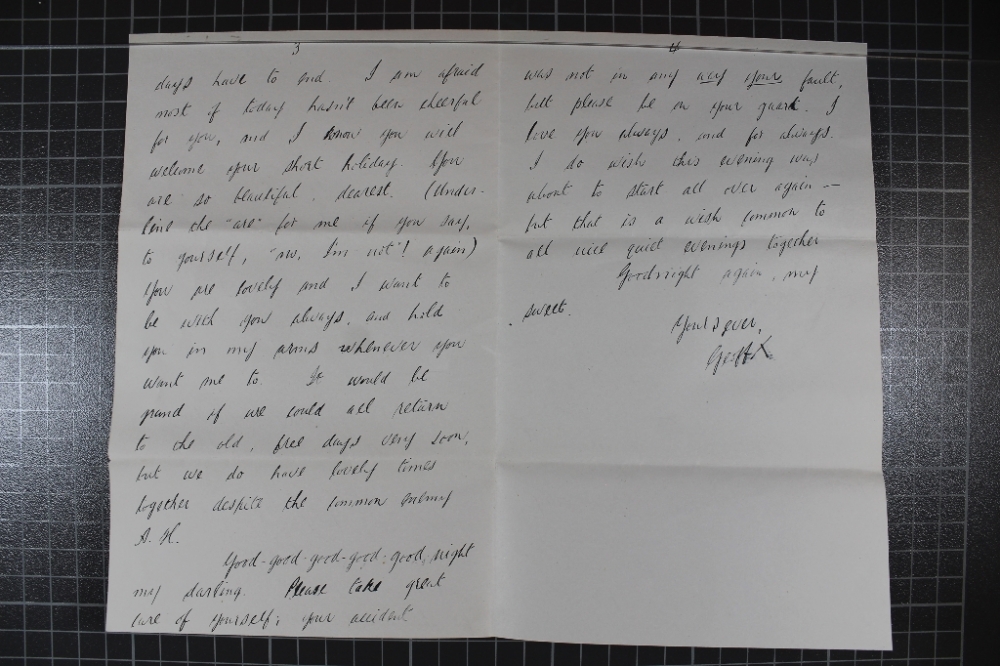 3
days have to end. I am afraid
most of today hasn't been cheerful
for you, and I know you will
welcome your short holiday. You
are so beautiful, dearest. (Under-
line the "are" for me if you say,
to yourself, "no, I'm not"! again)
You are lovely and I want to
be with you always, and hold
you in my arms whenever you
want me to. It would be
grand if we could all return
to the old, free days very soon,
but we do have lovely times
together despite the common enemy
A. H.
Good-good-good-good-good, night
my darling. Please take great
care of yourself; your accident
4
was not in any way your fault,
but please be on your guard. I
love you always, and for always.
I do wish this evening was
about to start all over again —
but that is a wish common to
all nice quiet evenings together
Goodnight again, my
sweet.
Yours ever,
Geoff X